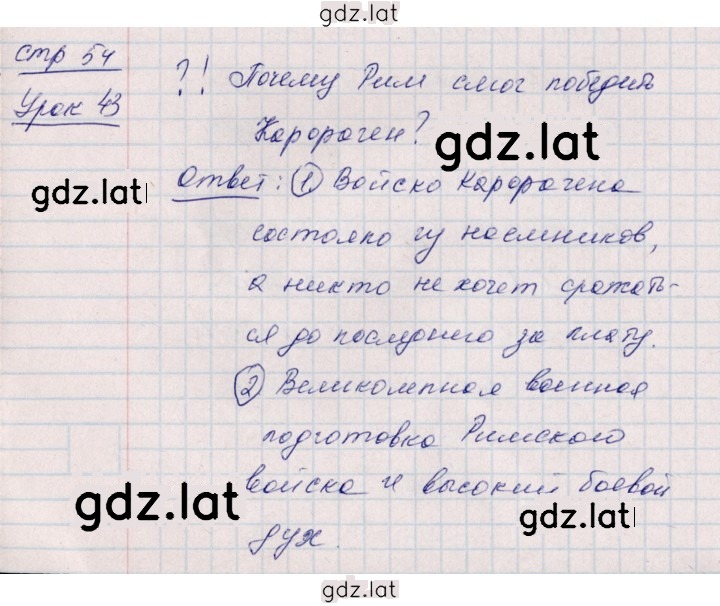 gdz.lat
стр 54
Урок 43
?! Почему Рим смог победить
Карфаген?
gdz.lat
gdz.lat
Ответ: ① Войско Карфагена
состояло из наемников,
а никто не хочет сражать-
ся до последнего за плату.
② Великолепная военная
подготовка Римского
войска и высокий боевой
дух.
gdz.lat
gdz.lat
gdz.lat